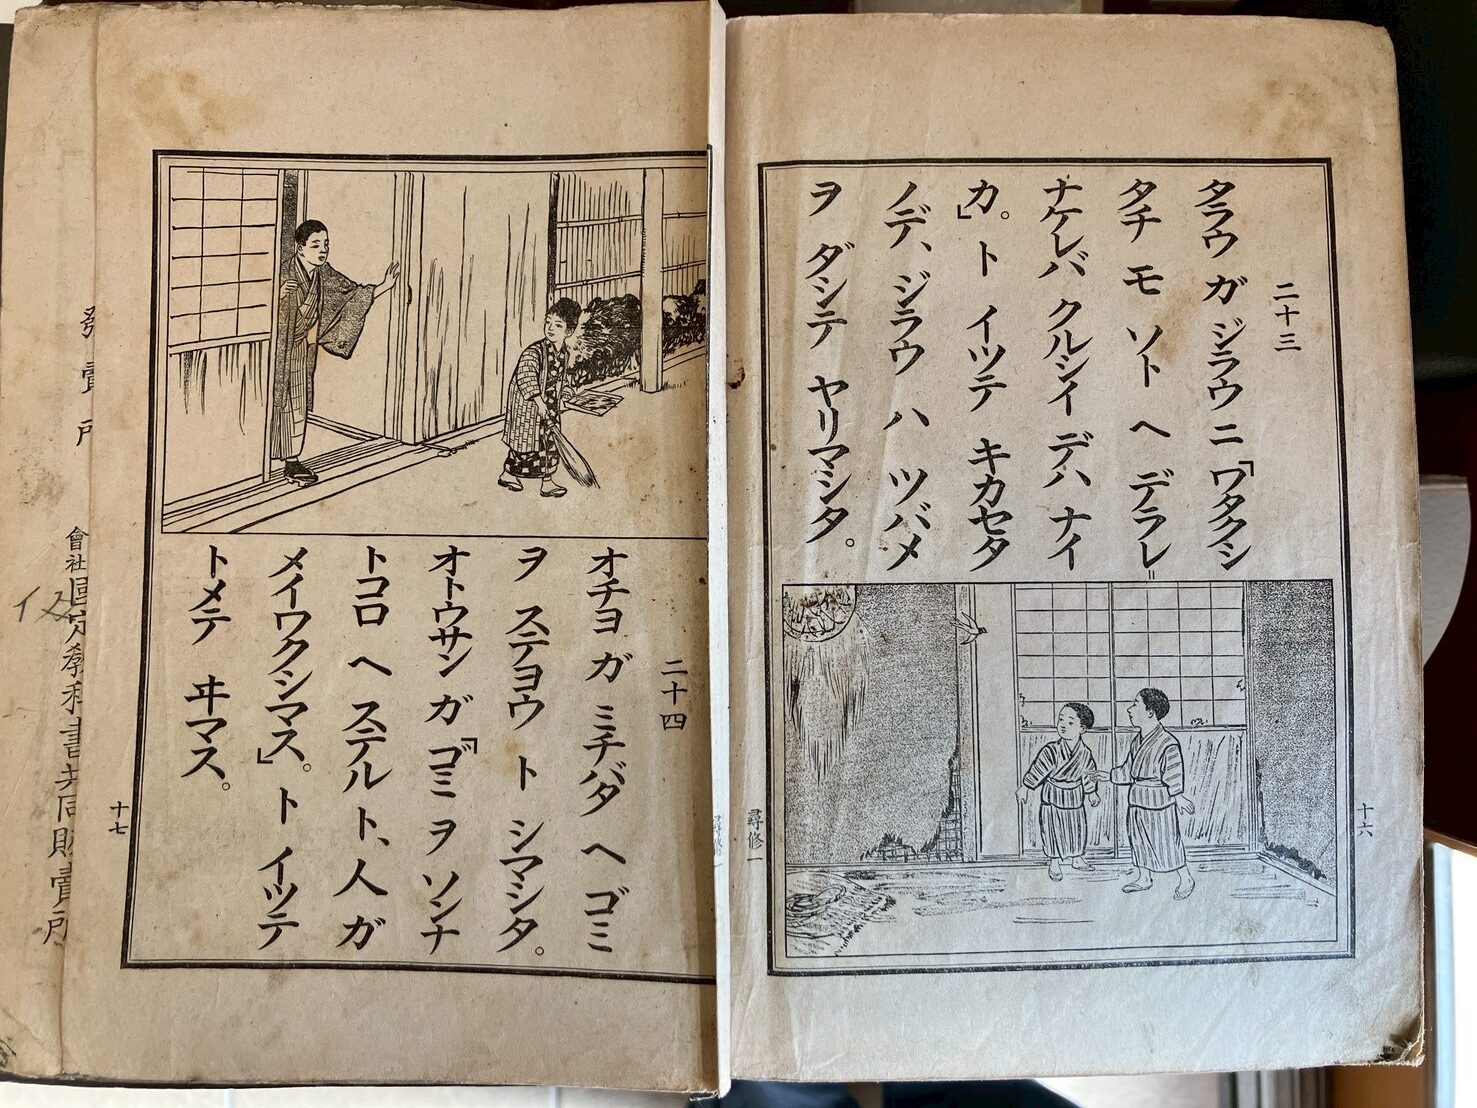 二十三
タラウ ガ ジラウ ニ「ワタクシ
タチ モ ソト ヘ デラレ゠
ナケレバ クルシイ デハ ナイ
カ。」ト イツテ キカセタ
ノデ、ジラウ ハ ツバメ
ヲ ダシテ ヤリマシタ。
十六
尋修一
二十四
オチヨ ガ ミチバタ ヘ ゴミ
ヲ ステヨウ ト シマシタ。
オトウサン ガ「ゴミ ヲ ソンナ
トコロ ヘ ステルト、人 ガ
メイワクシマス。」ト イツテ
トメテ ヰマス。
十七
發賣所
會社
國定教科書共同販賣所